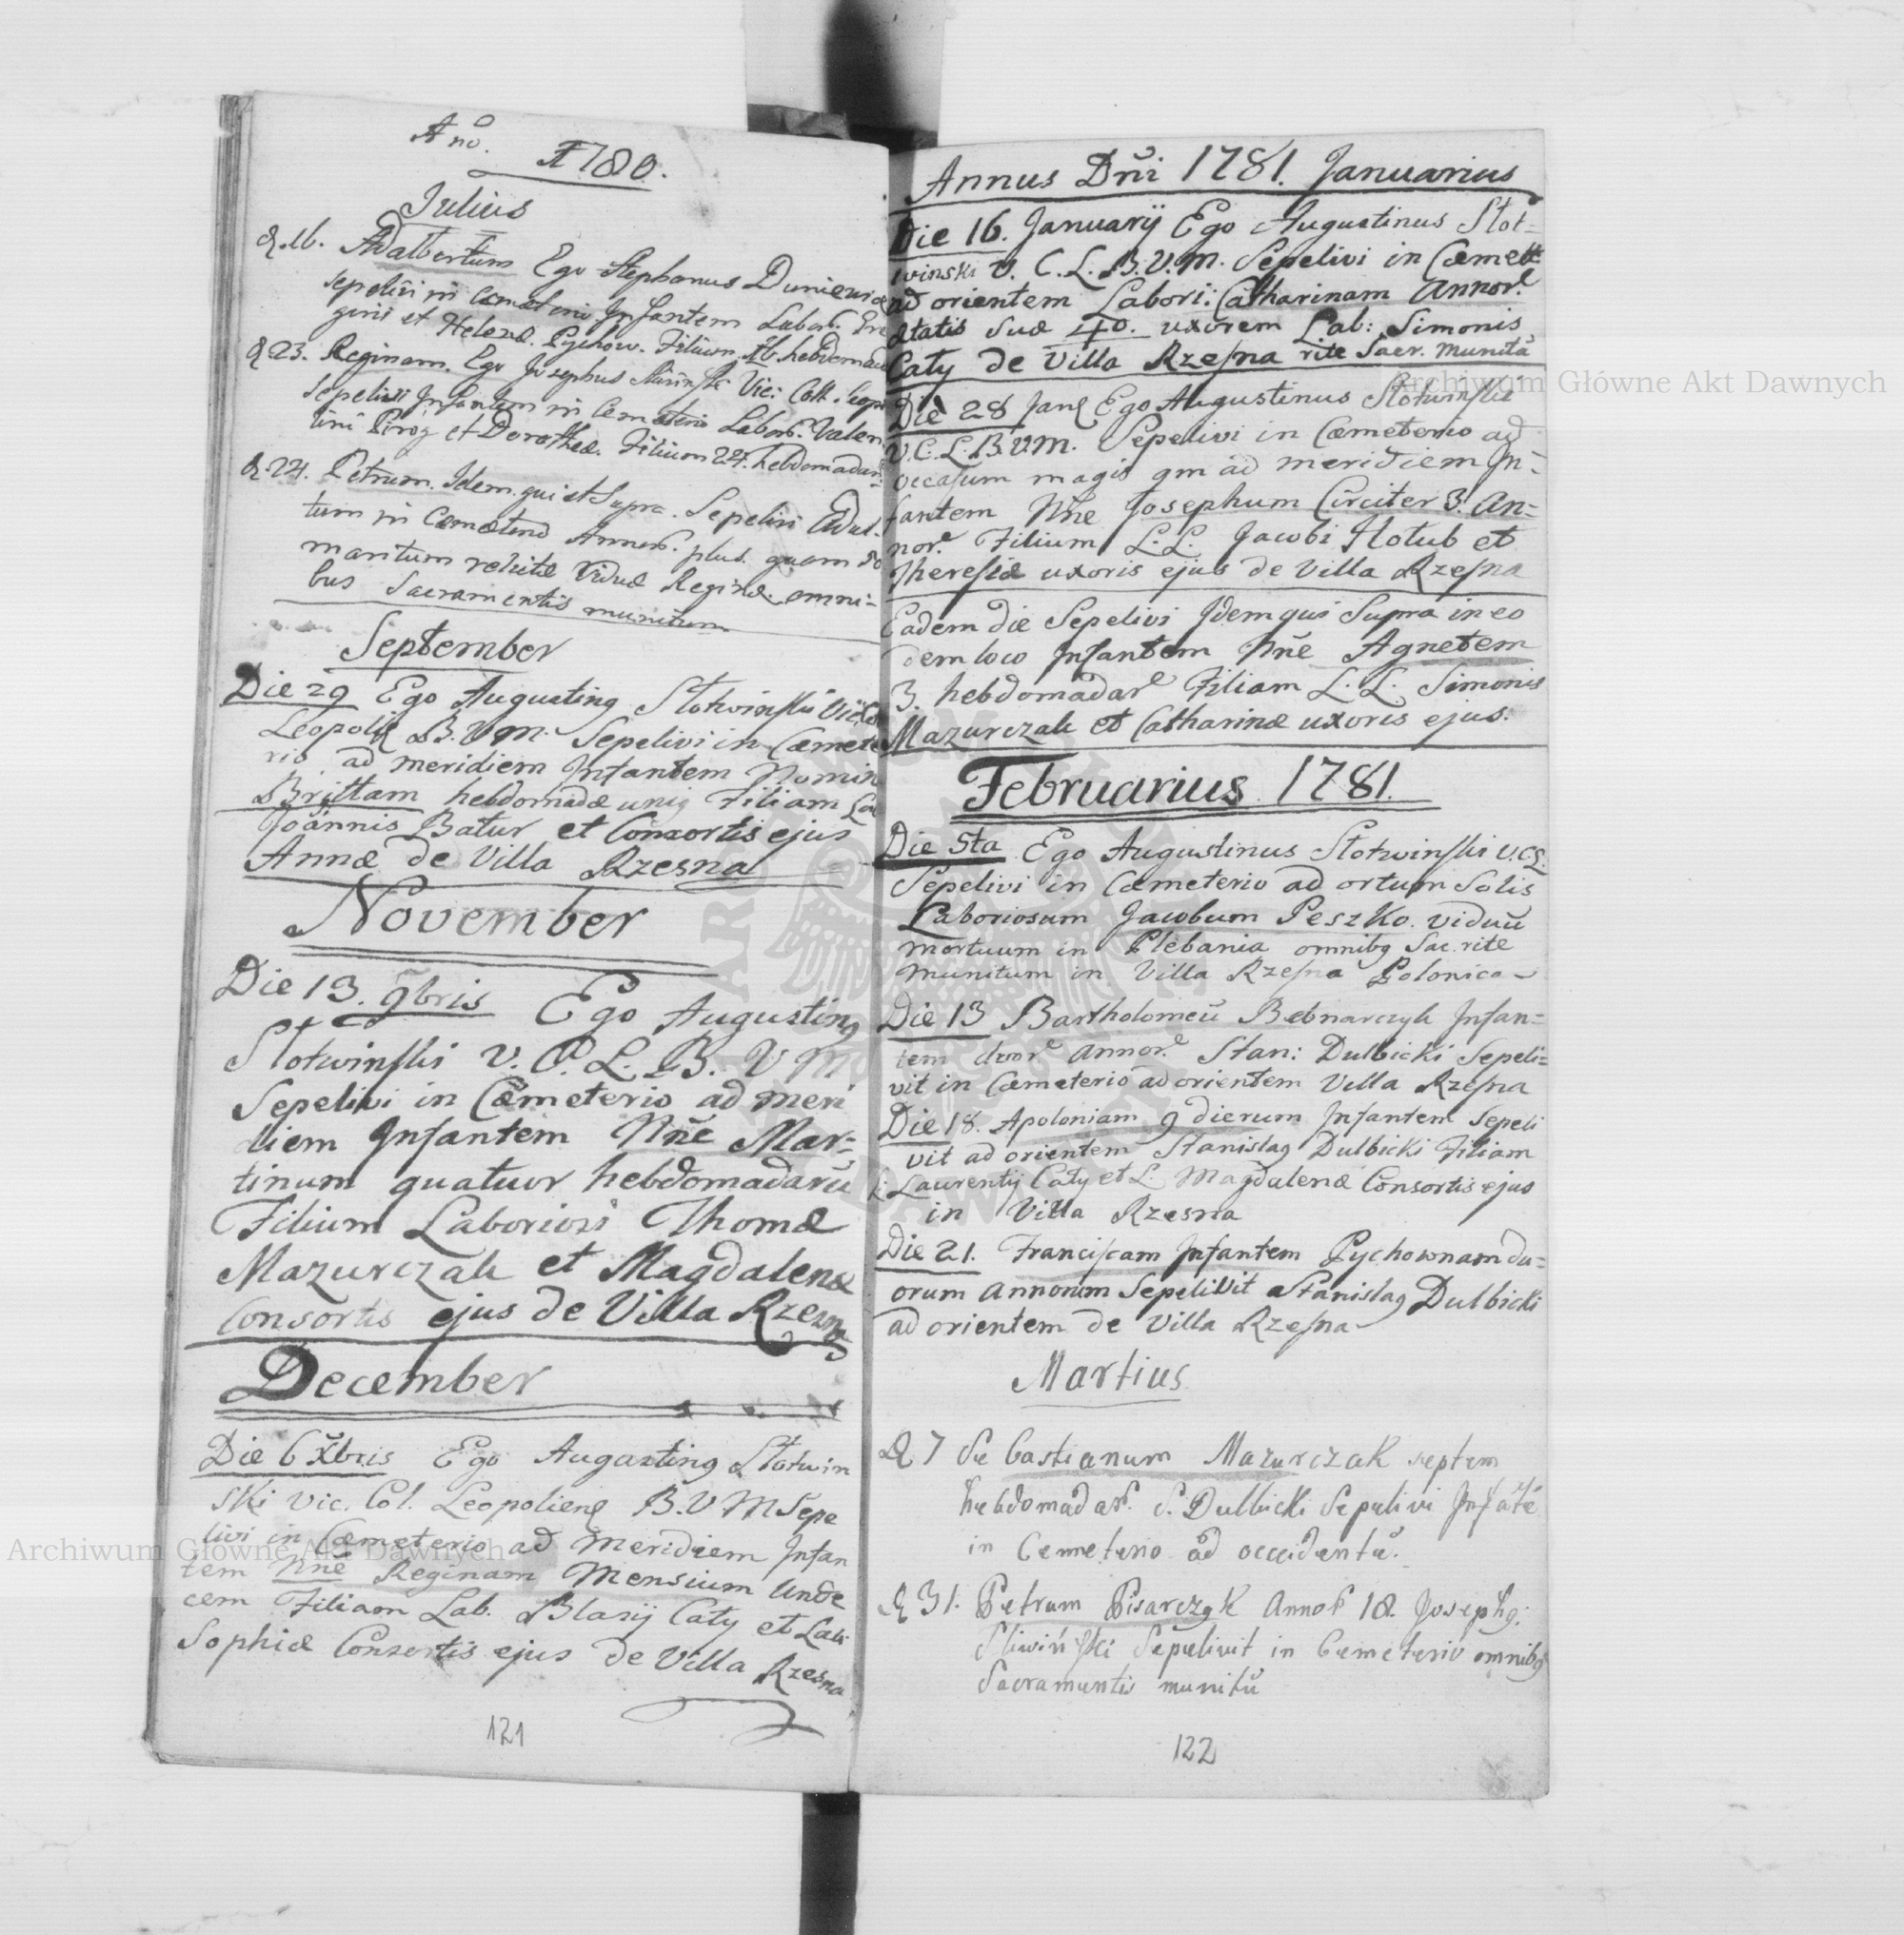 Ano. 1780.
Julius
d. 16. Adalbertum Ego Stephanus Duniewicz
sepelivi in cæmeterio Infantem Labor. Gre
gorii et Helenæ Pychow. Filium 16. hebdomada
d 23. Reginam. Ego Josephus Vic: Coll. Leopo
Sepelivi Infantem in Cemeterio Labor. Valen
tini Pirog et Dorotheæ. Filiam 24. hebdomadar:
d. 24. Petrum. Idem qui et Supra. Sepelivi Adul-
tum in Cæmeterio Annor. plus quam 50
maritum relictæ Viduæ Reginæ omni-
bus Sacramentis munitum
September
Die 29 Ego Augustinq Słotwinski Vic. Col
Leopol B. V M. Sepelivi in Cæmete
rio ad meridiem Infantem Nomin
Brittam hebdomadæ uniq Filiam Lab
Joannis Batur et Consortis ejus
Annæ de Villa Rzesna
November
Die 13. 9bris Ego Augustinq
Słotwinski V. C. L. B. V M
Sepelivi in Cæmeterio ad meri
diem Infantem Nñe Mar=
tinum quatuor hebdomadarũ
Filium Laboriosi Thomæ
Mazurczak et Magdalenæ
Consortis ejus de Villa Rzesna
December
Die 6 Xbris Ego Augustinq Słotwin
ski Vic. Col. Leopolienę B. V M Sepe
livi in Cæmeterio ad Meridiem Infan
tem Nñe Reginam Mensium Unde
cem Filiam Lab. Blasij Cały et Lab
Sophiæ Consortis ejus de Villa Rzesna
121
Annus Dñi 1781. Januarius
Die 16. Januarij Ego Augustinus Słot=
winski V. C. L. B. V. M. Sepelivi in Cæmet
ad orientem Labori: Catharinam Annor.
ætatis suæ 40. uxorem Lab: Simonis
Cały de Villa Rzesna rite Sacr. munitã
Die 28 Jan Ego Augustinus Słotwinski
V. C. L. B. V. M. Sepelivi in Cæmeterio ad
occasum magis qm ad meridiem In=
fantem Nñe Josephum Circiter 3. An=
nor. Filium L. L. Jacobi Hołub et
Theresiæ uxoris ejus de Villa Rzesna
Eadem die Sepelivi Idem qui Supra in eo
dem loco Infantem Nñe Agnetem
3. hebdomadar Filiam L. L. Simonis
Mazurczak et Catharinæ uxoris ejus.
Februarius 1781.
Die 5ta Ego Augustinus Słotwinski V. C. L.
Sepelivi in Cæmeterio ad ortum Solis
Laboriosum Jacobum Peszko. viduũ
mortuum in Plebania omnibq Sac. rite
munitum in Villa Rzesna Polonica
Die 13 Bartholomeũ Bebnarczyk Infan=
tem duor. annor. Stan: Dulbicki Sepeli=
vit in Cæmeterio ad orientem Villa Rzesna
Die 18. Apoloniam 9 dierum Infantem Sepeli
vit ad orientem Stanislaq Dulbicki Filiam
L. Laurentij Cały et L. Magdalenæ Consortis ejus
in Villa Rzesna
Die 21. Franciscam Infantem Pychownam du=
orum Annorum Sepelivit Stanislaq Dulbicki
ad orientem de Villa Rzesna
Martius
D 7 Sebastianum Mazurczak septem
hebdomadar. S. Dulbicki Sepelivi Infatẽ
in Cemeterio ad occidentẽ.
D 31. Petrum Pisarczyk Annor 18. Josephq.
Sliwiński Sepelivit in Cemeterio omnibq
Sacramentis munitũ
122
Archiwum Główne Akt Dawnych
Archiwum Główne Akt Dawnych